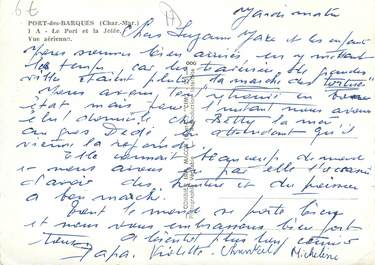 6 €
PORT-des-BARQUES (Char.-Mar.)
1 A - Le Port et la Jetée.
Vue aérienne.
Mardi matin
Chers Suzanne Max et les enfants
Nous sommes bien arrivés en y mettant
le temps car les traversées de grandes
villes étaient plutôt la marche des tortues
Nous avons
état mais pour l'instant nous avons
élu domicile chez Betty la
Dédé en attendant qu'il
vienne la rejoindre
Elle connait beaucoup de monde
et nous avons eu par elle l'occasion
d'avoir des huitres et du poisson
a bon marché.
Tout le monde se porte bien
et nous vous embrassons bien fort
tous a bientôt plus long courrier
Papa. Violette. Chantal Micheline